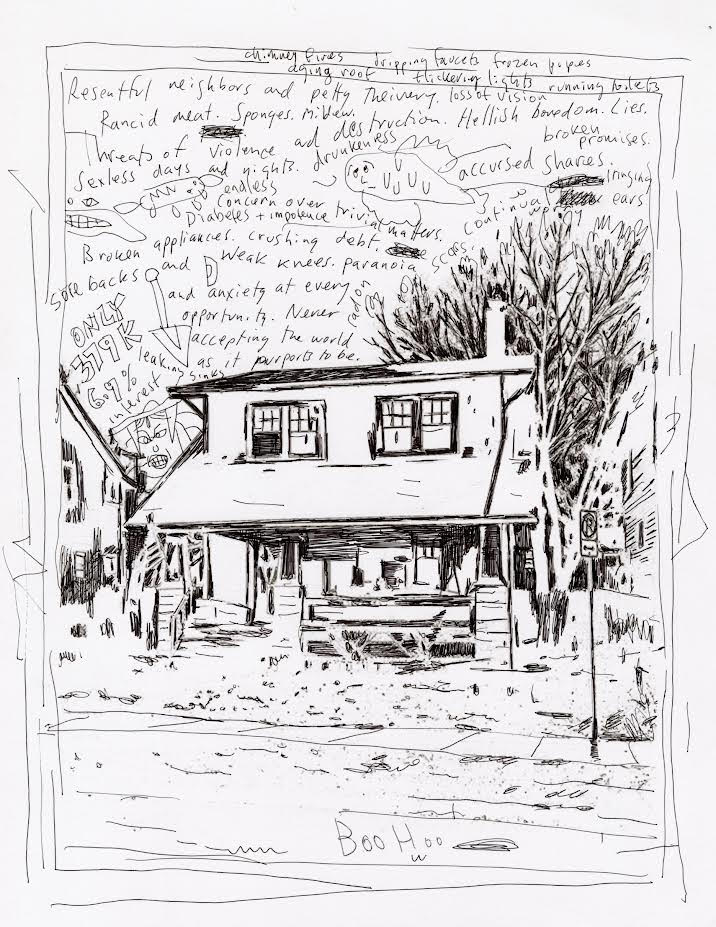 chimney fires dripping faucets frozen pipes
aging roof flickering lights running toilets
Resentful neighbors and petty Theivery. loss of vision
Rancid meat. Sponges. Mildew. Hellish boredom. Lies.
Threats of violence and destruction. broken promises.
Sexless days and nights. drunkeness accursed shares.
ringing ears
endless
concern over
Diabetes + impotence trivial matters. continual worry
Broken appliances. crushing debt. scars.
Sore backs and weak knees. paranoia
and anxiety at every
opportunity. Never
accepting the world
as it purports to be.
leaking sinks
ONLY
379K
6.9%
interest
P
Boo Hoo